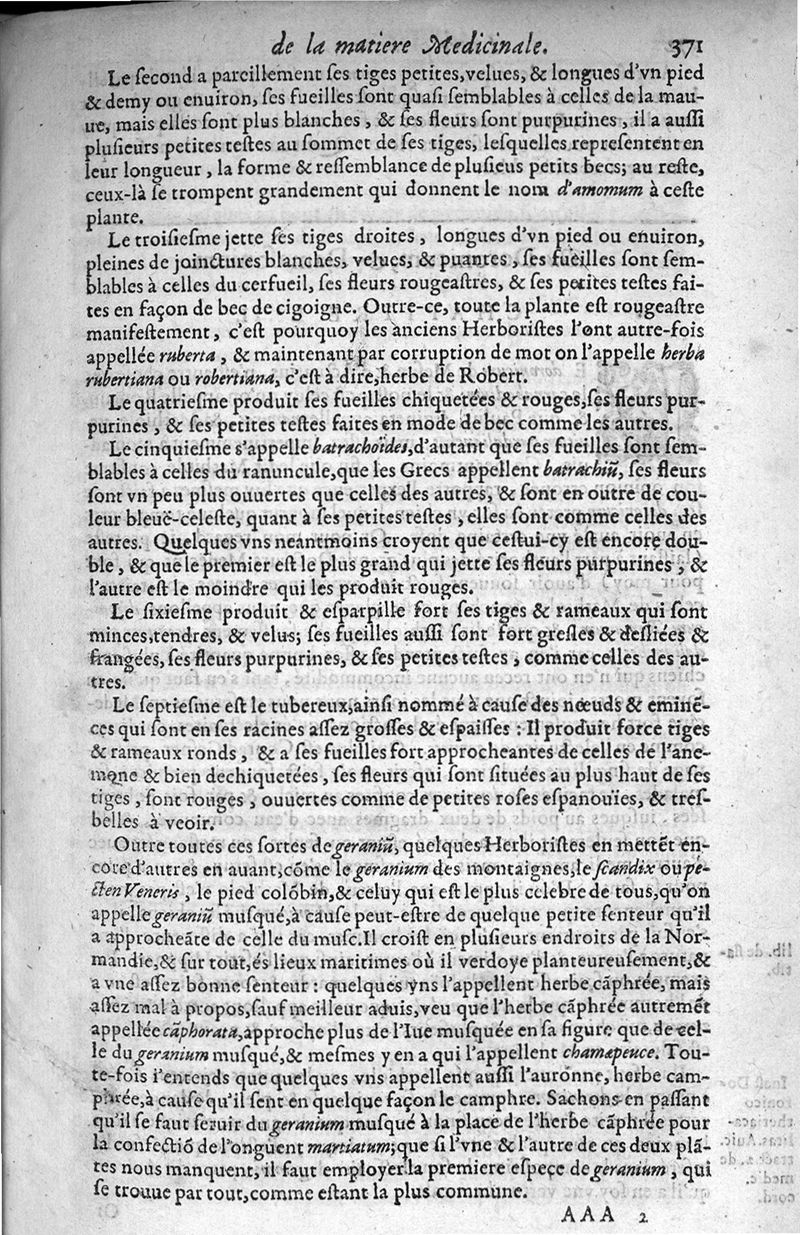 de la matiere Medicinale. 371
Le ſecond a pareillement ſes tiges petites, velues, & longues d'vn pied
& demy ou enuiron, ſes fueilles ſont quaſi ſemblables à celles de la mau-
ue, mais elles ſont plus blanches, & ſes fleurs ſont purpurines, il a auſſi
pluſieurs petites teſtes au ſommet de ſes tiges, leſquelles repreſentent en
leur longueur, la forme & reſſemblance de pluſieus petits becs; au reſte,
ceux-là ſe trompent grandement qui donnent le nom d'amomum à ceſte
plante.
Le troiſieſme jette ſes tiges droites, longues d'vn pied ou enuiron,
pleines de joinctures blanches, velues, & puantes, ſes fueilles ſont ſem-
blables à celles du cerfueil, ſes fleurs rougeaſtres, & ſes petites teſtes fai-
tes en façon de bec de cigoigne. Outre-ce, toute la plante eſt rougeaſtre
manifeſtement, c'eſt pourquoy les anciens Herboriſtes l'ont autre-fois
appellée ruberta, & maintenant par corruption de mot on l'appelle herba
rubertiana ou robertiana, c'eſt à dire, herbe de Robert.
Le quatrieſme produit ſes fueilles chiquetées & rouges, ſes fleurs pur-
purines, & ſes petites teſtes faites en mode de bec comme les autres.
Le cinquieſme s'appelle batrachoïdes, d'autant que ſes fueilles ſont ſem-
blables à celles du ranuncule, que les Grecs appellent batrachiũ, ſes fleurs
ſont vn peu plus ouuertes que celles des autres, & ſont en outre de cou-
leur bleue-celeſte, quant à ſes petites teſtes, elles ſont comme celles des
autres. Quelques vns neantmoins croyent que ceſtui-cy eſt encore dou-
ble, & que le premier eſt le plus grand qui jette ſes fleurs purpurines, &
l'autre eſt le moindre qui les produit rouges.
Le ſixieſme produit & eſparpille fort ſes tiges & rameaux qui ſont
minces, tendres, & velus; ſes fueilles auſſi ſont fort greſles & deſliées &
frangées, ſes fleurs purpurines, & ſes petites teſtes, comme celles des au-
tres.
Le ſeptieſme eſt le tubereux, ainſi nommé à cauſe des nœuds & eminē-
ces qui ſont en ſes racines aſſez groſſes & eſpaiſſes : Il produit force tiges
& rameaux ronds, & a ſes fueilles fort approcheantes de celles de l'ane-
mone & bien dechiquetées, ſes fleurs qui ſont ſituées au plus haut de ſes
tiges, ſont rouges, ouuertes comme de petites roſes eſpanouïes, & treſ-
belles à veoir.
Outre toutes ces ſortes de geraniũ, quelques Herboriſtes en mettēt en-
core d'autres en auant, cōme le geranium des montaignes, le ſcandix ou pe-
cten Veneris, le pied colōbin, & celuy qui eſt le plus celebre de tous, qu'on
appelle geraniũ muſqué, à cauſe peut-eſtre de quelque petite ſenteur qu'il
a approcheāte de celle du muſc. Il croiſt en pluſieurs endroits de la Nor-
mandie, & ſur tout, és lieux maritimes où il verdoye planteureuſement, &
a vne aſſez bonne ſenteur : quelques vns l'appellent herbe cāphrée, mais
aſſez mal à propos, ſauf meilleur aduis, veu que l'herbe cāphrée autremēt
appellée cāphorata, approche plus de l'Iue muſquée en ſa figure que de cel-
le du geranium muſqué, & meſmes y en a qui l'appellent chamæpeuce. Tou-
te-fois i'entends que quelques vns appellent auſſi l'auronne, herbe cam-
phrée, à cauſe qu'il ſent en quelque façon le camphre. Sachons en paſſant
qu'il ſe faut ſeruir du geranium muſqué à la place de l'herbe cāphrée pour
la confectiō de l'onguent martiatum; que ſi l'vne & l'autre de ces deux plā-
tes nous manquent, il faut employer la premiere eſpece de geranium, qui
ſe trouue par tout, comme eſtant la plus commune.
AAA 2